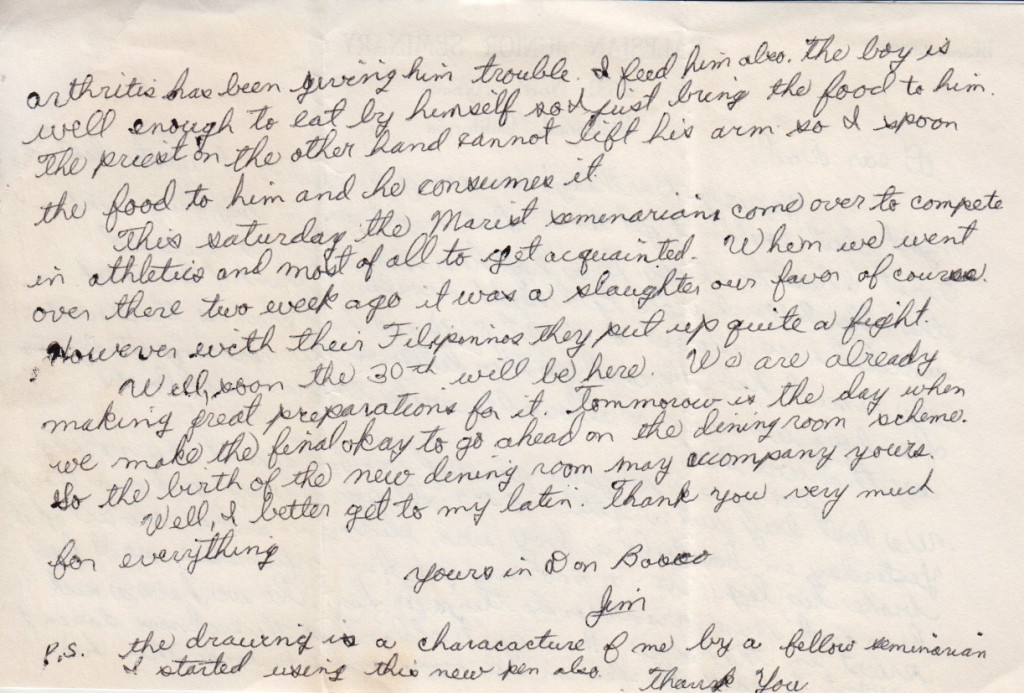 arthritis has been giving him trouble. I feed him also. The boy is
well enough to eat by himself so I just bring the food to him.
The priest on the other hand cannot lift his arm so I spoon
the food to him and he consumes it.
This saturday the Marist semenarians come over to compete
in athletics and most of all to get acquainted. When we went
over there two week ago it was a slaughter, our favor of course.
However with their Filipinnos they put up quite a fight.
Well, soon the 30th will be here. We are already
making great preparations for it. Tommorow is the day when
we make the final okay to go ahead on the dining room scheme.
So the birth of the new dining room may accompany yours.
Well, I better get to my latin. Thank you very much
for everything
Yours in Don Bosco
Jim
P.S. the drawing is a characacture of me by a fellow seminarian
I started using this new pen also. Thank You